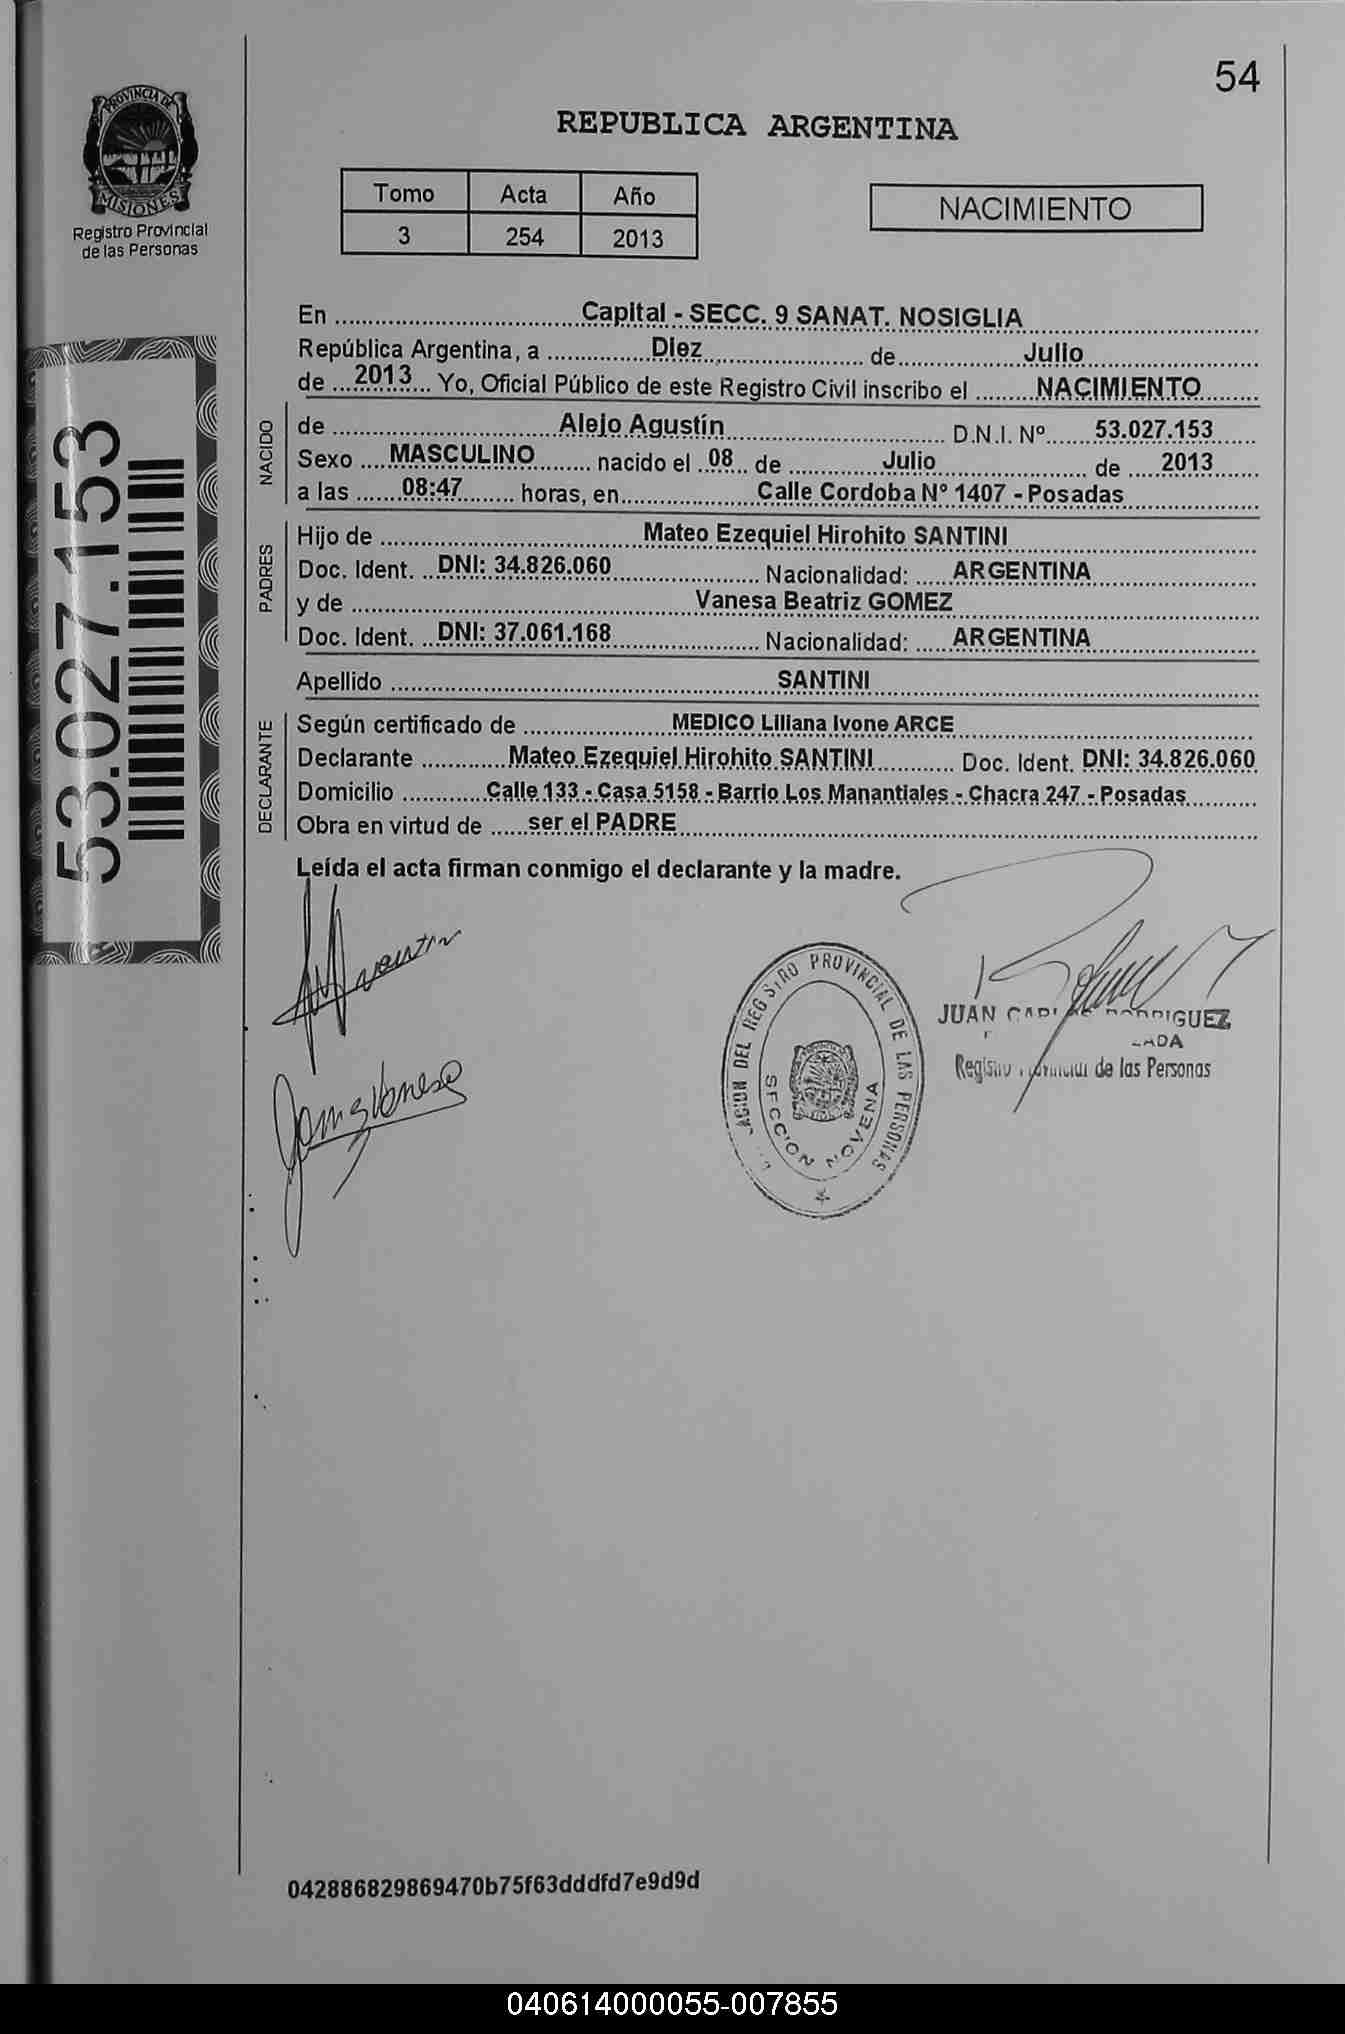 54
PROVINCIA DE
MISIONES
Registro Provincial
de las Personas
REPUBLICA ARGENTINA
Tomo Acta Año
3 254 2013
NACIMIENTO
53.027.153
En ........ Capital - SECC. 9 SANAT. NOSIGLIA ........
República Argentina, a ........ Diez ........ de ........ Julio ........
de ... 2013 ... Yo, Oficial Público de este Registro Civil inscribo el ........ NACIMIENTO ........
NACIDO
de ........ Alejo Agustín ........ D.N.I. Nº ........ 53.027.153 ........
Sexo .... MASCULINO ........ nacido el .. 08 .. de ........ Julio ........ de .... 2013 ........
a las ...... 08:47 ........ horas, en ........ Calle Cordoba Nº 1407 - Posadas ........
PADRES
Hijo de ........ Mateo Ezequiel Hirohito SANTINI ........
Doc. Ident. .. DNI: 34.826.060 ........ Nacionalidad: ..... ARGENTINA ........
y de ........ Vanesa Beatriz GOMEZ ........
Doc. Ident. .. DNI: 37.061.168 ........ Nacionalidad: ..... ARGENTINA ........
Apellido ........ SANTINI ........
DECLARANTE
Según certificado de ........ MEDICO Liliana Ivone ARCE ........
Declarante ........ Mateo Ezequiel Hirohito SANTINI ........ Doc. Ident. DNI: 34.826.060
Domicilio ........ Calle 133 - Casa 5158 - Barrio Los Manantiales - Chacra 247 - Posadas ........
Obra en virtud de ..... ser el PADRE ........
Leída el acta firman conmigo el declarante y la madre.
DEL REGISTRO PROVINCIAL DE LAS PERSONAS
SECCION NOVENA
JUAN CARLOS RODRIGUEZ
Registro Provincial de las Personas
042886829869470b75f63dddfd7e9d9d
040614000055-007855